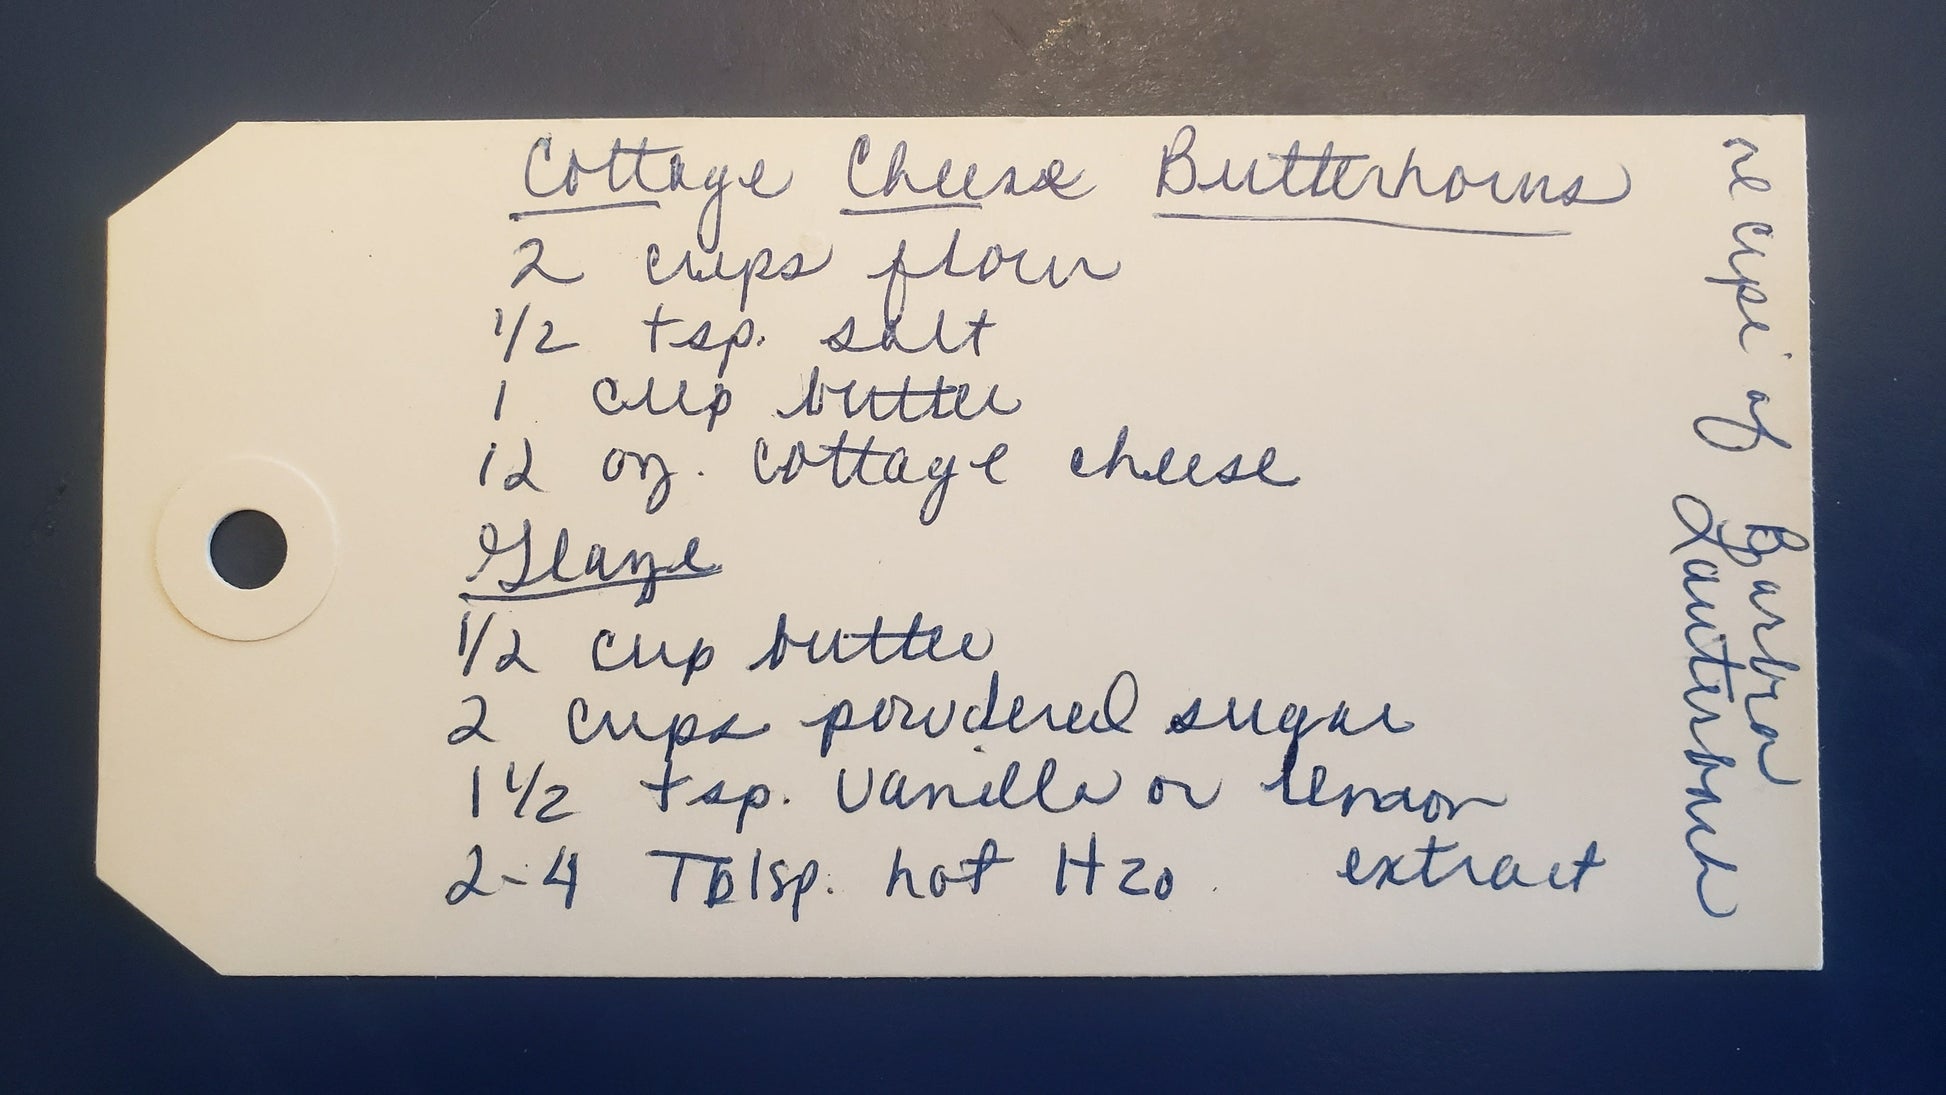 Cottage Cheese Butterhorns
2 cups flour
1/2 tsp. salt
1 cup butter
12 oz. cottage cheese
Glaze
1/2 cup butter
2 cups powdered sugar
1 1/2 tsp. vanilla or lemon
extract
2-4 Tblsp. hot H2O.
recipe of Barbra